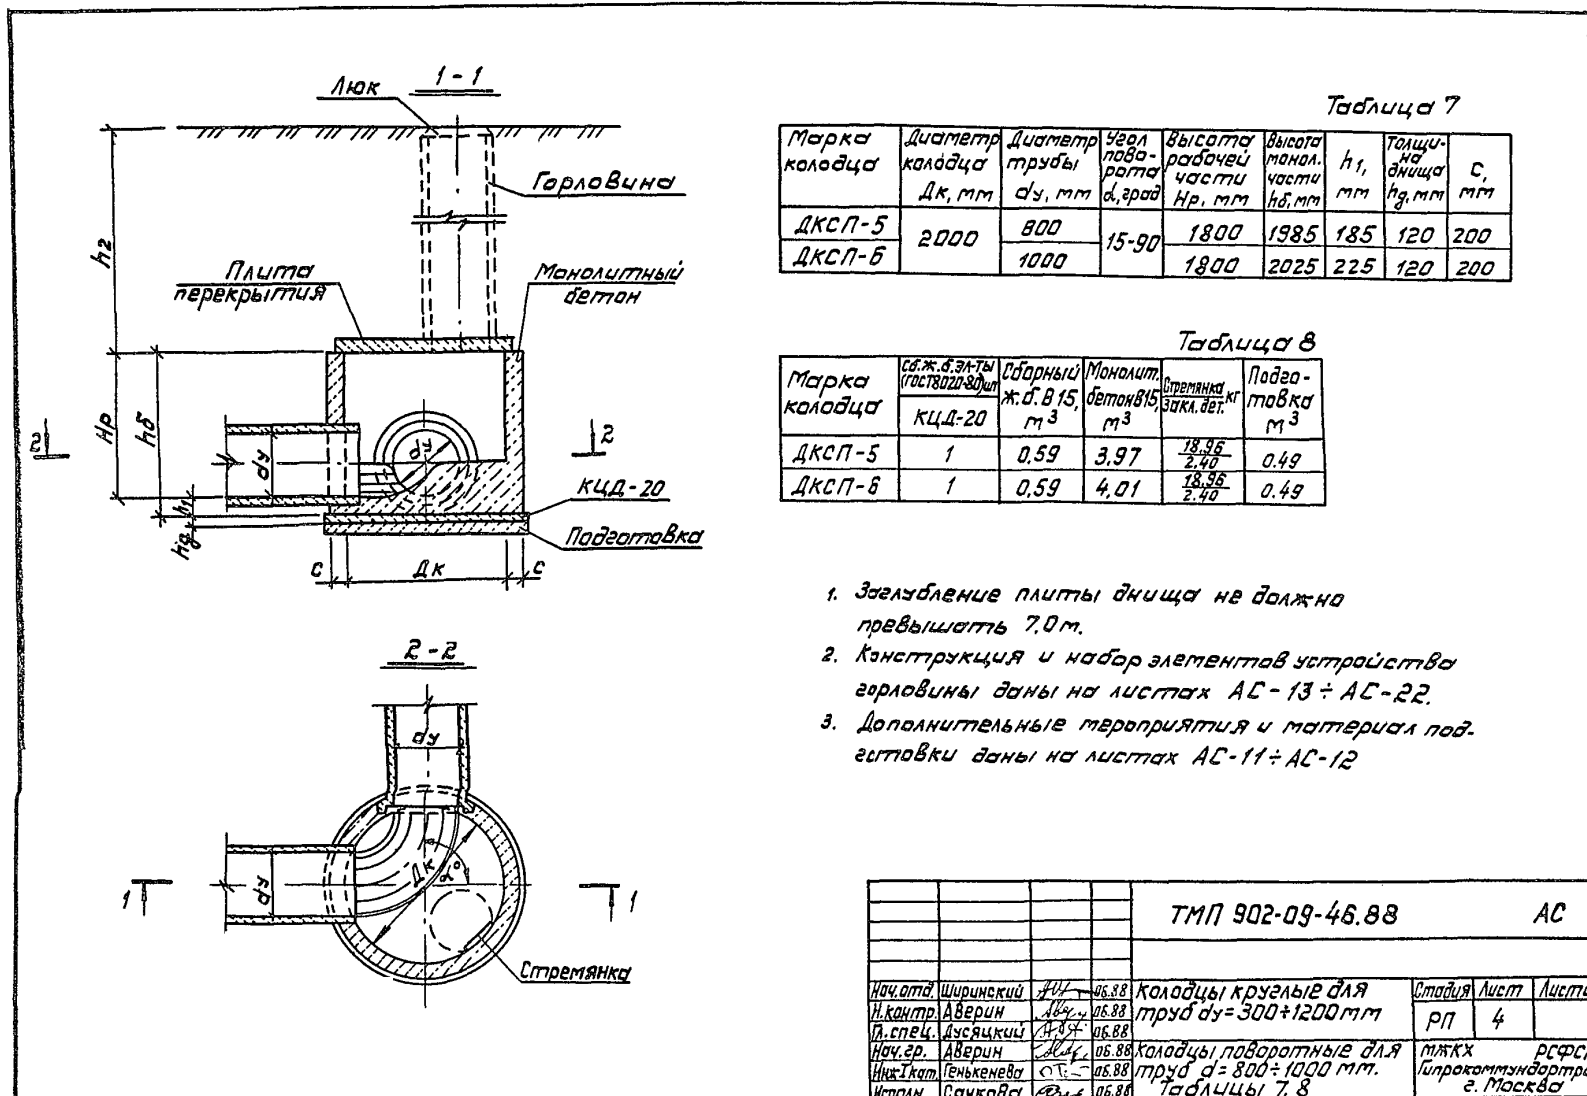 1-1
Люк
Горловина
Плита
перекрытия
Монолитный
бетон
h2
Hр
hб
h1
hд
dу
dу
2
2
КЦД-20
Подготовка
С
Дк
С
2-2
dу
dу
Дк
α°
1
1
Стремянка
Таблица 7
Марка колодца | Диаметр колодца Дк, мм | Диаметр трубы dу, мм | Угол поворота α, град | Высота рабочей части Hр, мм | Высота монол. части hб, мм | h1, мм | Толщи-на днища hд, мм | С, мм
ДКСП-5 | 2000 | 800 | 15-90 | 1800 | 1985 | 185 | 120 | 200
ДКСП-6 | 1000 | 1800 | 2025 | 225 | 120 | 200
Таблица 8
Марка колодца | Сб.ж.б.эл-ты (ГОСТ8020-80)шт КЦД-20 | Сборный ж.б.В15, м3 | Монолит. бетон В15, м3 | Стремянка/закл.дет. кг | Подго-товка м3
ДКСП-5 | 1 | 0,59 | 3,97 | 18.96/2.40 | 0.49
ДКСП-6 | 1 | 0,59 | 4,01 | 18.96/2.40 | 0.49
1. Заглубление плиты днища не должно
превышать 7,0м.
2. Конструкция и набор элементов устройства
горловины даны на листах АС-13÷АС-22.
3. Дополнительные мероприятия и материал под-
готовки даны на листах АС-11÷АС-12
ТМП 902-09-46.88 АС
Нач.отд. Ширинский 06.88
Н.контр. Аверин 06.88
Гл.спец. Дусяцкий 06.88
Нач.гр. Аверин 06.88
Инж.Iкат. Генькенева 06.88
Исполн. Сачкова 06.88
Колодцы круглые для
труб dу=300÷1200мм
Стадия Лист Листо
РП 4
Колодцы поворотные для
труб d=800÷1000 мм.
Таблицы 7,8
МЖКХ РСФС
Гипрокоммундортра
г. Москва